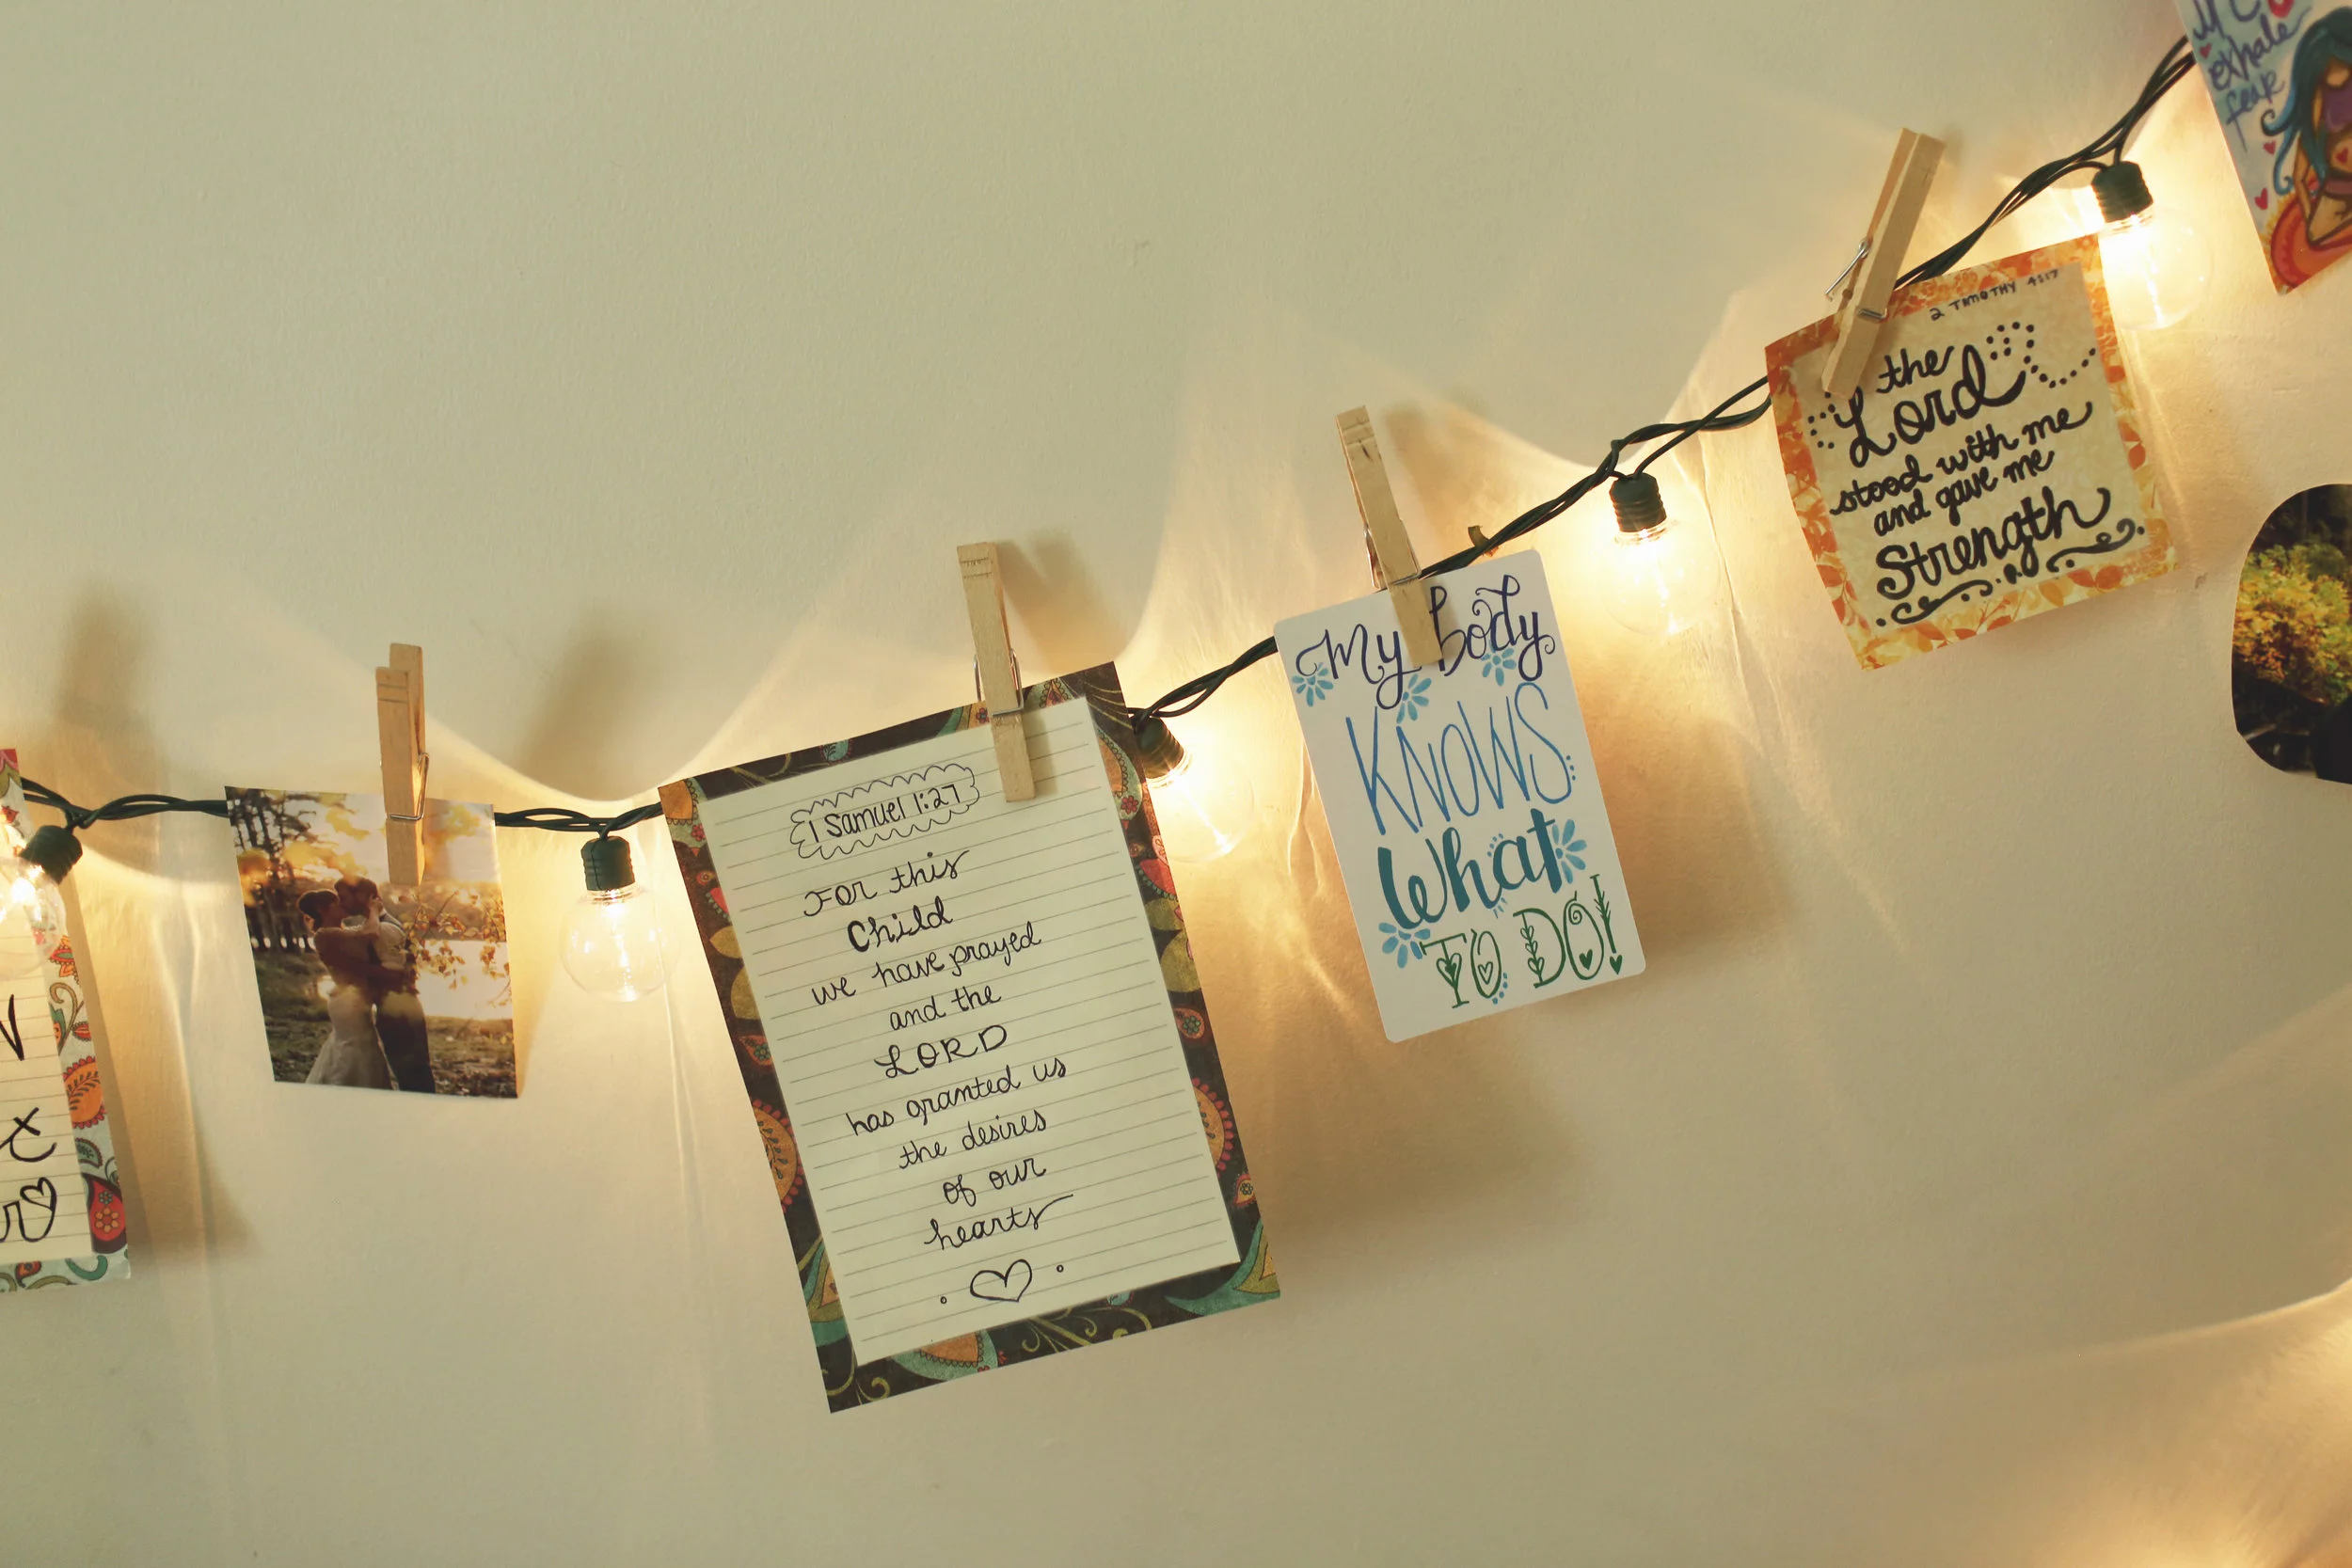 1 Samuel 1:27
For this
Child
we have prayed
and the
LORD
has granted us
the desires
of our
hearts
My body
KNOWS
What
TO DO!
2 TIMOTHY 4:17
the
Lord
stood with me
and gave me
Strength
exhale
fear